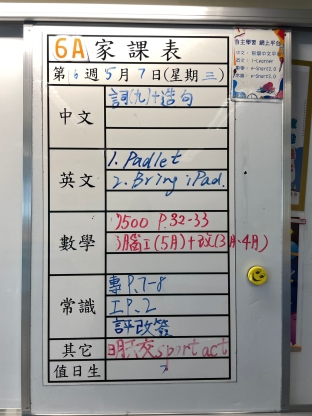 6A 家課表
第6週5月7日(星期三)
中文
詞(九)+造句
英文
1. Padlet
2. Bring iPad.
數學
P.32-33
(5月)+改(3月、4月)
常識
專P.7-8
工P.2
評改簽
其它
交sport act
值日生
自主學習 網上平台